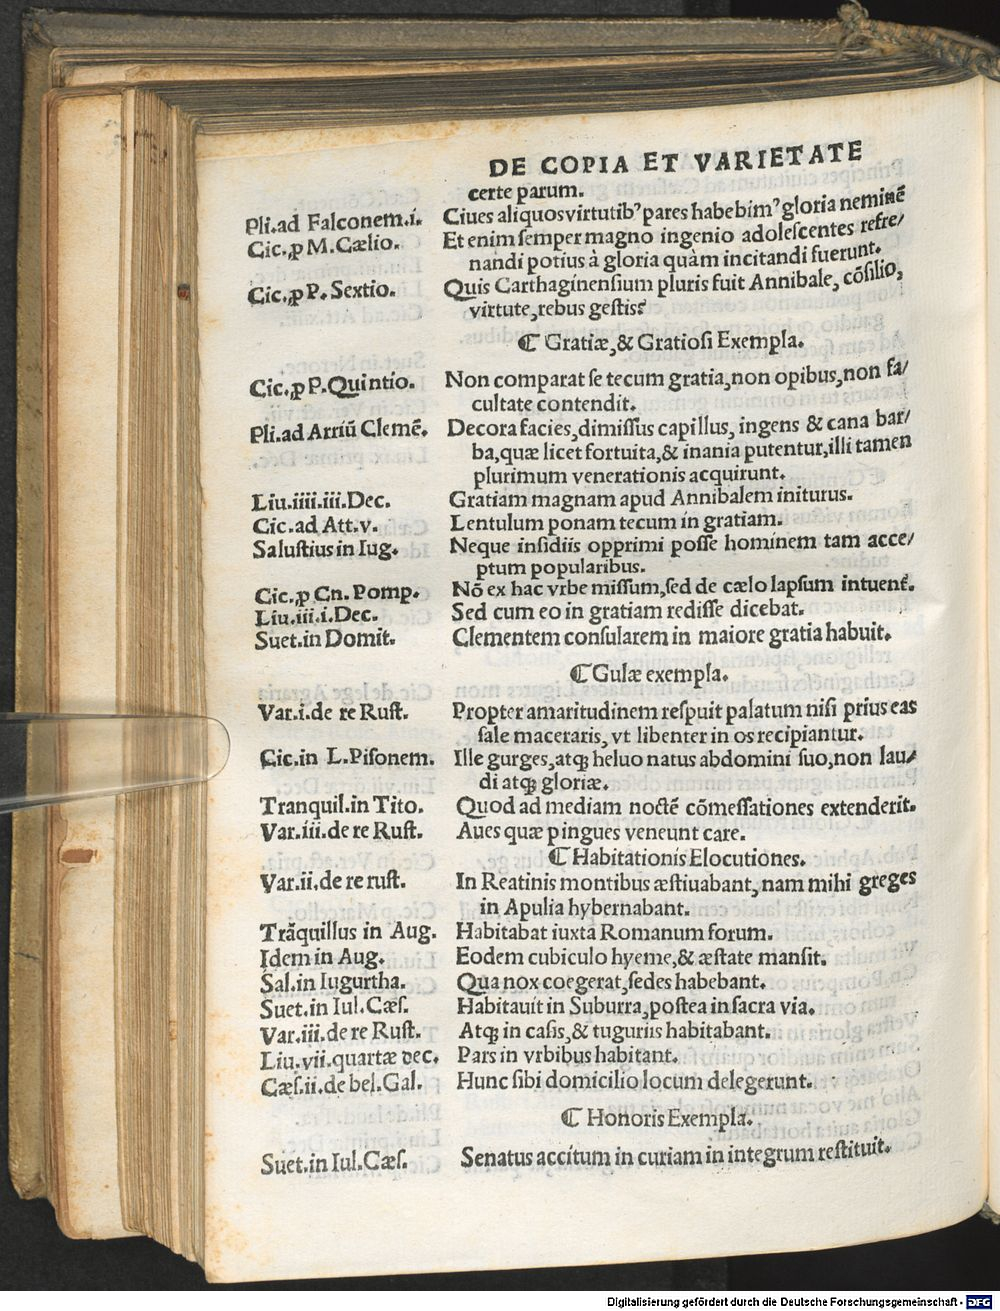 DE COPIA ET VARIETATE
certe parum.
Pli.ad Falconem.i. Ciues aliquos virtutibꝰ pares habebimꝰ gloria neminẽ
Cic.ꝓ M.Cælio. Et enim semper magno ingenio adolescentes refre/
nandi potius à gloria quàm incitandi fuerunt.
Cic.ꝓ P.Sextio. Quis Carthaginensium pluris fuit Annibale, cõsilio,
virtute,rebus gestis?
⁋ Gratiæ,& Gratiosi Exempla.
Cic.ꝓ P.Quintio. Non comparat se tecum gratia,non opibus,non fa/
cultate contendit.
Pli.ad Arriũ Clemẽ. Decora facies,dimissus capillus, ingens & cana bar/
ba,quæ licet fortuita,& inania putentur,illi tamen
plurimum venerationis acquirunt.
Liu.iiii.iii.Dec. Gratiam magnam apud Annibalem initurus.
Cic.ad Att.v. Lentulum ponam tecum in gratiam.
Salustius in Iug. Neque insidiis opprimi posse hominem tam acce/
ptum popularibus.
Cic.ꝓ Cn. Pomp. Nõ ex hac vrbe missum,sed de cælo lapsum intuent̃.
Liu.iii.i.Dec. Sed cum eo in gratiam redisse dicebat.
Suet.in Domit. Clementem consularem in maiore gratia habuit.
⁋ Gulæ exempla.
Var.i.de re Rust. Propter amaritudinem respuit palatum nisi prius eas
sale maceraris, vt libenter in os recipiantur.
Cic.in L.Pisonem. Ille gurges,atqꝫ heluo natus abdomini suo,non lau/
di atqꝫ gloriæ.
Tranquil.in Tito. Quod ad mediam noctẽ cõmessationes extenderit.
Var.iii.de re Rust. Aues quæ pingues veneunt care.
⁋ Habitationis Elocutiones.
Var.ii.de re rust. In Reatinis montibus æstiuabant,nam mihi greges
in Apulia hybernabant.
Trãquillus in Aug. Habitabat iuxta Romanum forum.
Idem in Aug. Eodem cubiculo hyeme,& æstate mansit.
Sal.in Iugurtha. Qua nox coegerat,sedes habebant.
Suet.in Iul.Cæs. Habitauit in Suburra,postea in sacra via.
Var.iii.de re Rust. Atqꝫ in casis,& tuguriis habitabant.
Liu.vii.quartæ dec. Pars in vrbibus habitant.
Cæs.ii.de bel.Gal. Hunc sibi domicilio locum delegerunt.
⁋ Honoris Exempla.
Suet.in Iul.Cæs. Senatus accitum in curiam in integrum restituit.
Digitalisierung gefördert durch die Deutsche Forschungsgemeinschaft - DFG